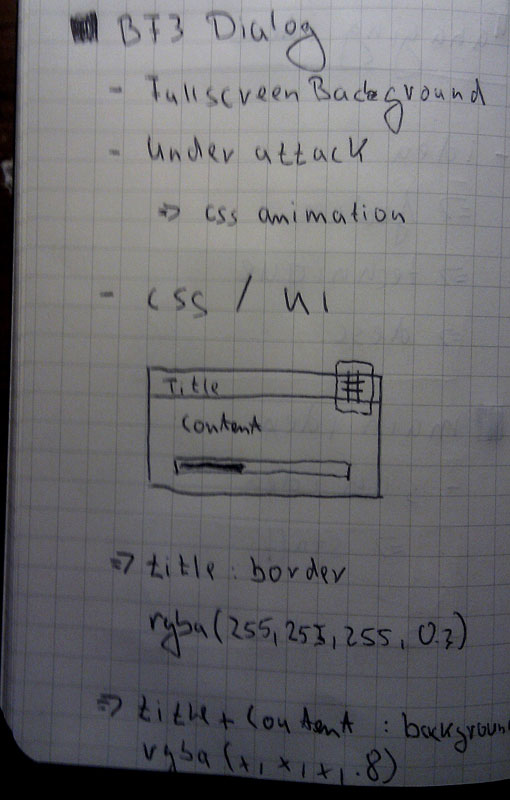 BT3 Dialog
- FullscreenBackground
- Under attack
=> css animation
- css / UI
Title
#
Content
=> title : border
rgba(255, 255, 255, 0.3)
=> title + Content : background
rgba(x, x, x, .8)